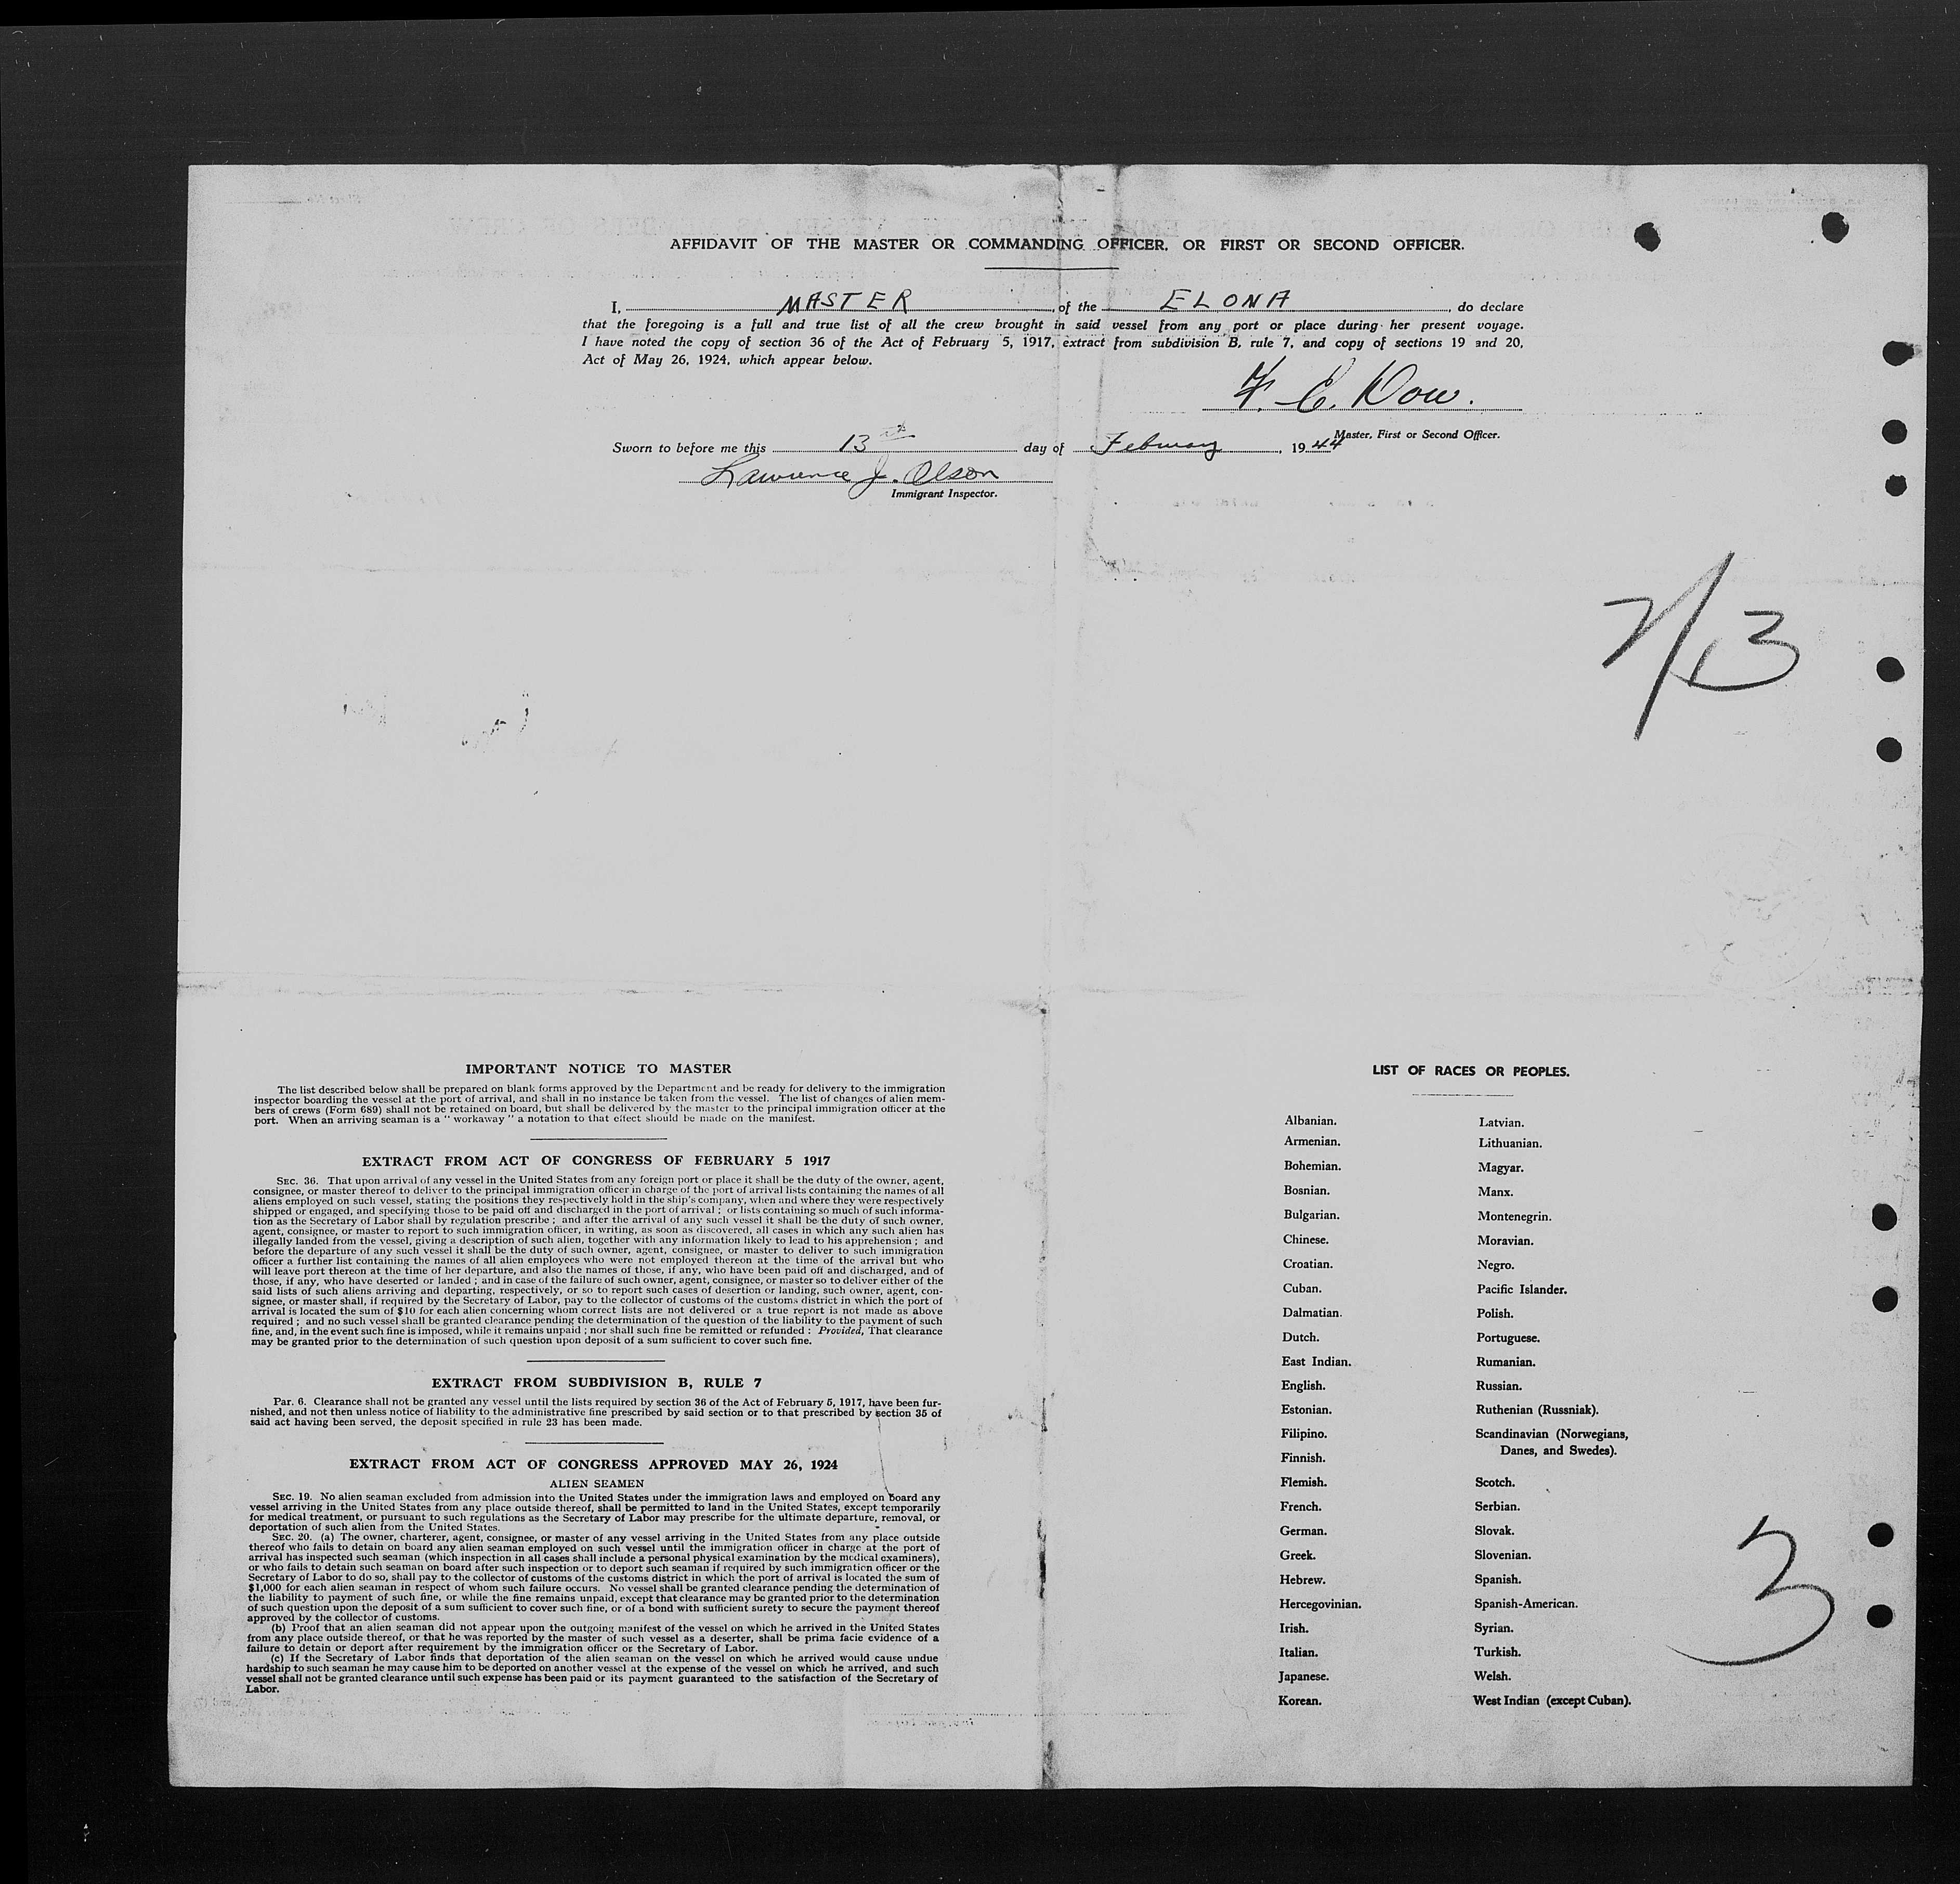 AFFIDAVIT OF THE MASTER OR COMMANDING OFFICER, OR FIRST OR SECOND OFFICER.
I, MASTER, of the ELONA, do declare
that the foregoing is a full and true list of all the crew brought in said vessel from any port or place during her present voyage.
I have noted the copy of section 36 of the Act of February 5, 1917, extract from subdivision B, rule 7, and copy of sections 19 and 20,
Act of May 26, 1924, which appear below.
F. C. Dow.
Master, First or Second Officer.
Sworn to before me this 13th day of February, 1944
Lawrence J. Olson
Immigrant Inspector.
2/13
IMPORTANT NOTICE TO MASTER
The list described below shall be prepared on blank forms approved by the Department and be ready for delivery to the immigration
inspector boarding the vessel at the port of arrival, and shall in no instance be taken from the vessel. The list of changes of alien mem-
bers of crews (Form 689) shall not be retained on board, but shall be delivered by the master to the principal immigration officer at the
port. When an arriving seaman is a "workaway" a notation to that effect should be made on the manifest.
EXTRACT FROM ACT OF CONGRESS OF FEBRUARY 5 1917
SEC. 36. That upon arrival of any vessel in the United States from any foreign port or place it shall be the duty of the owner, agent,
consignee, or master thereof to deliver to the principal immigration officer in charge of the port of arrival lists containing the names of all
aliens employed on such vessel, stating the positions they respectively hold in the ship's company, when and where they were respectively
shipped or engaged, and specifying those to be paid off and discharged in the port of arrival; or lists containing so much of such informa-
tion as the Secretary of Labor shall by regulation prescribe; and after the arrival of any such vessel it shall be the duty of such owner,
agent, consignee, or master to report to such immigration officer, in writing, as soon as discovered, all cases in which any such alien has
illegally landed from the vessel, giving a description of such alien, together with any information likely to lead to his apprehension; and
before the departure of any such vessel it shall be the duty of such owner, agent, consignee, or master to deliver to such immigration
officer a further list containing the names of all alien employees who were not employed thereon at the time of the arrival but who
will leave port thereon at the time of her departure, and also the names of those, if any, who have been paid off and discharged, and of
those, if any, who have deserted or landed; and in case of the failure of such owner, agent, consignee, or master so to deliver either of the
said lists of such aliens arriving and departing, respectively, or so to report such cases of desertion or landing, such owner, agent, con-
signee, or master shall, if required by the Secretary of Labor, pay to the collector of customs of the customs district in which the port of
arrival is located the sum of $10 for each alien concerning whom correct lists are not delivered or a true report is not made as above
required; and no such vessel shall be granted clearance pending the determination of the question of the liability to the payment of such
fine, and, in the event such fine is imposed, while it remains unpaid; nor shall such fine be remitted or refunded: Provided, That clearance
may be granted prior to the determination of such question upon deposit of a sum sufficient to cover such fine.
EXTRACT FROM SUBDIVISION B, RULE 7
Par. 6. Clearance shall not be granted any vessel until the lists required by section 36 of the Act of February 5, 1917, have been fur-
nished, and not then unless notice of liability to the administrative fine prescribed by said section or to that prescribed by section 35 of
said act having been served, the deposit specified in rule 23 has been made.
EXTRACT FROM ACT OF CONGRESS APPROVED MAY 26, 1924
ALIEN SEAMEN
SEC. 19. No alien seaman excluded from admission into the United States under the immigration laws and employed on board any
vessel arriving in the United States from any place outside thereof, shall be permitted to land in the United States, except temporarily
for medical treatment, or pursuant to such regulations as the Secretary of Labor may prescribe for the ultimate departure, removal, or
deportation of such alien from the United States.
SEC. 20. (a) The owner, charterer, agent, consignee, or master of any vessel arriving in the United States from any place outside
thereof who fails to detain on board any alien seaman employed on such vessel until the immigration officer in charge at the port of
arrival has inspected such seaman (which inspection in all cases shall include a personal physical examination by the medical examiners),
or who fails to detain such seaman on board after such inspection or to deport such seaman if required by such immigration officer or the
Secretary of Labor to do so, shall pay to the collector of customs of the customs district in which the port of arrival is located the sum of
$1,000 for each alien seaman in respect of whom such failure occurs. No vessel shall be granted clearance pending the determination of
the liability to payment of such fine, or while the fine remains unpaid, except that clearance may be granted prior to the determination
of such question upon the deposit of a sum sufficient to cover such fine, or of a bond with sufficient surety to secure the payment thereof
approved by the collector of customs.
(b) Proof that an alien seaman did not appear upon the outgoing manifest of the vessel on which he arrived in the United States
from any place outside thereof, or that he was reported by the master of such vessel as a deserter, shall be prima facie evidence of a
failure to detain or deport after requirement by the immigration officer or the Secretary of Labor.
(c) If the Secretary of Labor finds that deportation of the alien seaman on the vessel on which he arrived would cause undue
hardship to such seaman he may cause him to be deported on another vessel at the expense of the vessel on which he arrived, and such
vessel shall not be granted clearance until such expense has been paid or its payment guaranteed to the satisfaction of the Secretary of
Labor.
LIST OF RACES OR PEOPLES.
Albanian.
Armenian.
Bohemian.
Bosnian.
Bulgarian.
Chinese.
Croatian.
Cuban.
Dalmatian.
Dutch.
East Indian.
English.
Estonian.
Filipino.
Finnish.
Flemish.
French.
German.
Greek.
Hebrew.
Hercegovinian.
Irish.
Italian.
Japanese.
Korean.
Latvian.
Lithuanian.
Magyar.
Manx.
Montenegrin.
Moravian.
Negro.
Pacific Islander.
Polish.
Portuguese.
Rumanian.
Russian.
Ruthenian (Russniak).
Scandinavian (Norwegians,
Danes, and Swedes).
Scotch.
Serbian.
Slovak.
Slovenian.
Spanish.
Spanish-American.
Syrian.
Turkish.
Welsh.
West Indian (except Cuban).
3